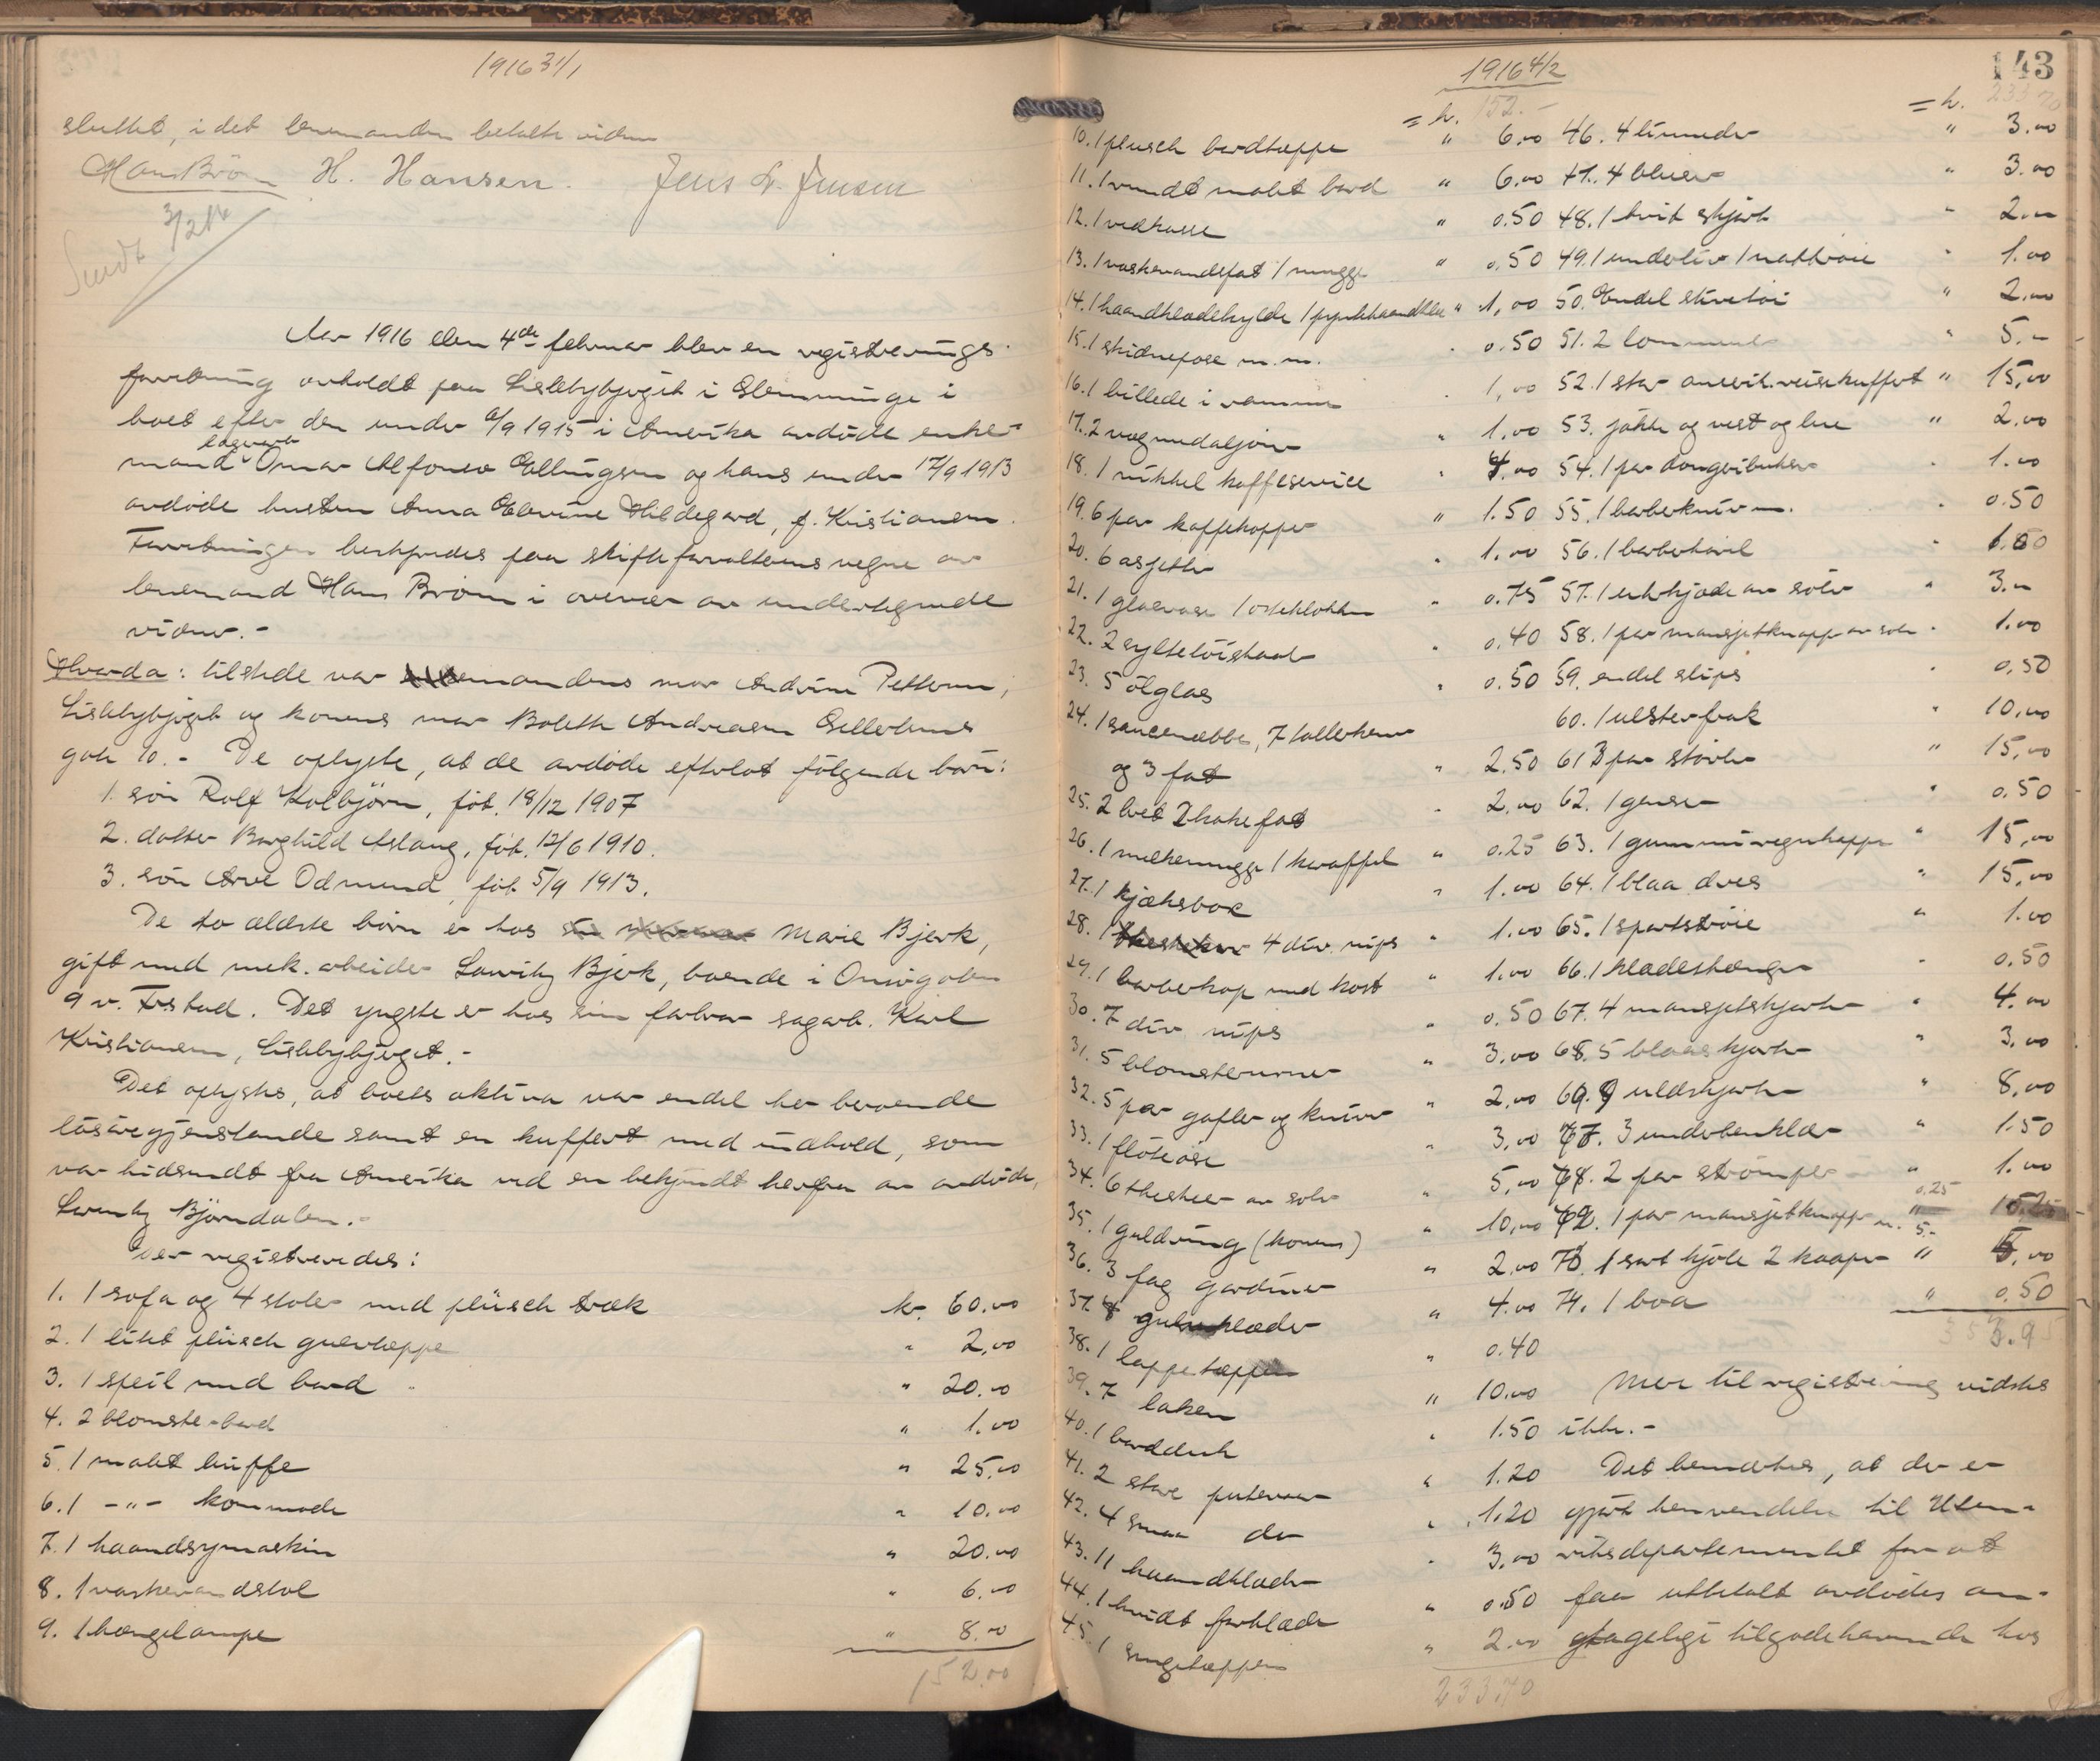 1916 31/1
sluttet, i det lensmanden betalte vidne
Hans Brön H. Hansen. Jens L. Jensen
Sendt 3/2 16
Aar 1916 den 4de februar blev en registrerings-
forretning avholdt paa Lislebybjerget i Glemminge i
boet efter den under 6/9 1915 i Amerika avdøde enke-
mand sagarb. Omar Alfonso Ellingsen og hans under 17/9 1913
avdøde hustru Anna Elevine Hildegard, f. Kristiansen.
Forretningen bestyredes paa skifteforvalterens vegne av
lensmand Hans Brön i overvær av undertegnede
vidner.-
Hvorda: tilstede var enkemandens mor Andrine Pettersen,
Lislebybjerget og konens mor Bolette Andreasen Gellertsens
gate 10.- De oplyste, at de avdøde efterlot følgende barn:
1. sön Rolf Kolbjörn, föt. 18/12 1907
2. datter Borghild Aslaug, föt. 12/6 1910.
3. sön Arve Odmund, föt. 5/9 1913.
De to ældste börn er hos Marie Bjerk,
gift med mek. arbeider Lauritz Bjerk, boende i Onsögaten
9 v. Fr.stad. Det yngste er hos sin farbror sagarb. Karl
Kristiansen, Lislebybjerget.-
Det oplystes, at boets aktiva var endel her beroende
lösöregjenstande samt en kuffert med indhold, som
var hidsendt fra Amerika ved en bekjendt herfra av avdöde,
Lauritz Björndalen.-
Der registreredes:
1. 1 sofa og 4 stoler med plüsch træk kr. 60.00
2. 1 litet plüsch gulvteppe " 2,00
3. 1 speil med bord " 20.00
4. 2 blomsterbord " 1.00
5. 1 malet buffe " 25,00
6. 1 -"- kommode " 10.00
7. 1 haandsymaskin " 20.00
8. 1 vaskevandstol " 6.00
9. 1 hængelampe " 8.00
152.00
1916 4/2
143
= kr. 152.-
10. 1 plusch bordtæppe " 6.00
11. 1 rundt malet bord " 6.00
12. 1 vedkasse " 0.50
13. 1 vaskevandsfat 1 mugge " 0.50
14. 1 haandklædehylde 1 pyntehaandklæ " 1,00
15. 1 skidnepose m.m. " 0.50
16. 1 billede i ramme " 1,00
17. 2 vægmedaljoner " 1.00
18. 1 nikkel kaffeservice " 4.00
19. 6 par kaffekopper " 1.50
20. 6 asjetter " 1.00
21. 1 glasvase 1 osteklokke " 0.75
22. 2 syltetöiskaal " 0.40
23. 5 ölglas " 0.50
24. 1 saucenæbbe, 7 tallerkener
og 3 fat " 2.50
25. 2 bret 2 kakefat " 2.00
26. 1 melkemugge 1 karaffel " 0.25
27. 1 kjæksbox " 1.00
28. 4 div. nips " 1.00
29. 1 barberkop med kost " 1.00
30. 7 div nips " 0.50
31. 5 blomsterurner " 3.00
32. 5 par gafler og kniver " 2.00
33. 1 flöteöse " 3.00
34. 6 theskeer av sölv " 5,00
35. 1 guldring (konens) " 10,00
36. 3 fag gardiner " 2.00
37. 8 gulvklæder " 4.00
38. 1 lappetæppe " 0.40
39. 7 laken " 10.00
40. 1 bordduk " 1.50
41. 2 store putevaar " 1.20
42. 4 smaa do " 1.20
43. 11 haandklæder " 3.00
44. 1 hvidt forklæde " 0.50
45. 1 sengetæppe " 2.00
233.70
= kr. 233.70
46. 4 linneder " 3.00
47. 4 bluser " 3.00
48. 1 hvit skjört " 2.00
49. 1 underliv 1 nattröie " 1.00
50. Endel stivetöi " 2.00
51. 2 lommeur " 5.-
52. 1 stor amerik. reisekuffert " 15,00
53. jakke og vest og lue " 2.00
54. 1 par dongeribukser " 1.00
55. 1 barberkniv m. " 0.50
56. 1 barberhövl " 1.50
57. 1 urkjæde av sölv " 3.-
58. 1 par mansjetknapper av sölv " 1.00
59. endel slips " 0.50
60. 1 ulsterfrak " 10,00
61 3 par stövler " 15,00
62. 1 genser " 0.50
63. 1 gummiregnkappe " 15,00
64. 1 blaa dres " 15,00
65. 1 sportströie " 1.00
66. 1 klædeshænger " 0.50
67. 4 mansjetskjorter " 4.00
68. 5 blaaskjorter " 3.00
69. 9 uldskjorter " 8,00
70. 3 underbenklær " 1.50
71. 2 par strömper " 1.00
72. 1 par mansjetknapper m. " 0.25
73. 1 sort kjole 2 kaaper " 5,00
74. 1 boa " 0.50
353.95
Mer til registrering vidstes
ikke.-
Det bemærkes, at der er
gjört henvendelse til Uten-
riksdepartementet for at
faa utbetalt avdödes an-
gagelige tilgodehavende hos